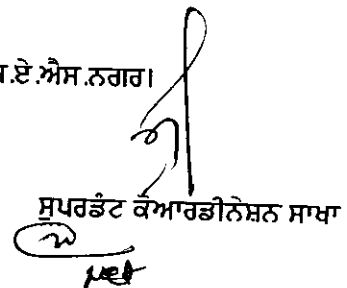 .ਏ.ਐਸ.ਨਗਰ।
ਸੁਪਰਡੰਟ ਕੋਆਰਡੀਨੇਸ਼ਨ ਸਾਖਾ